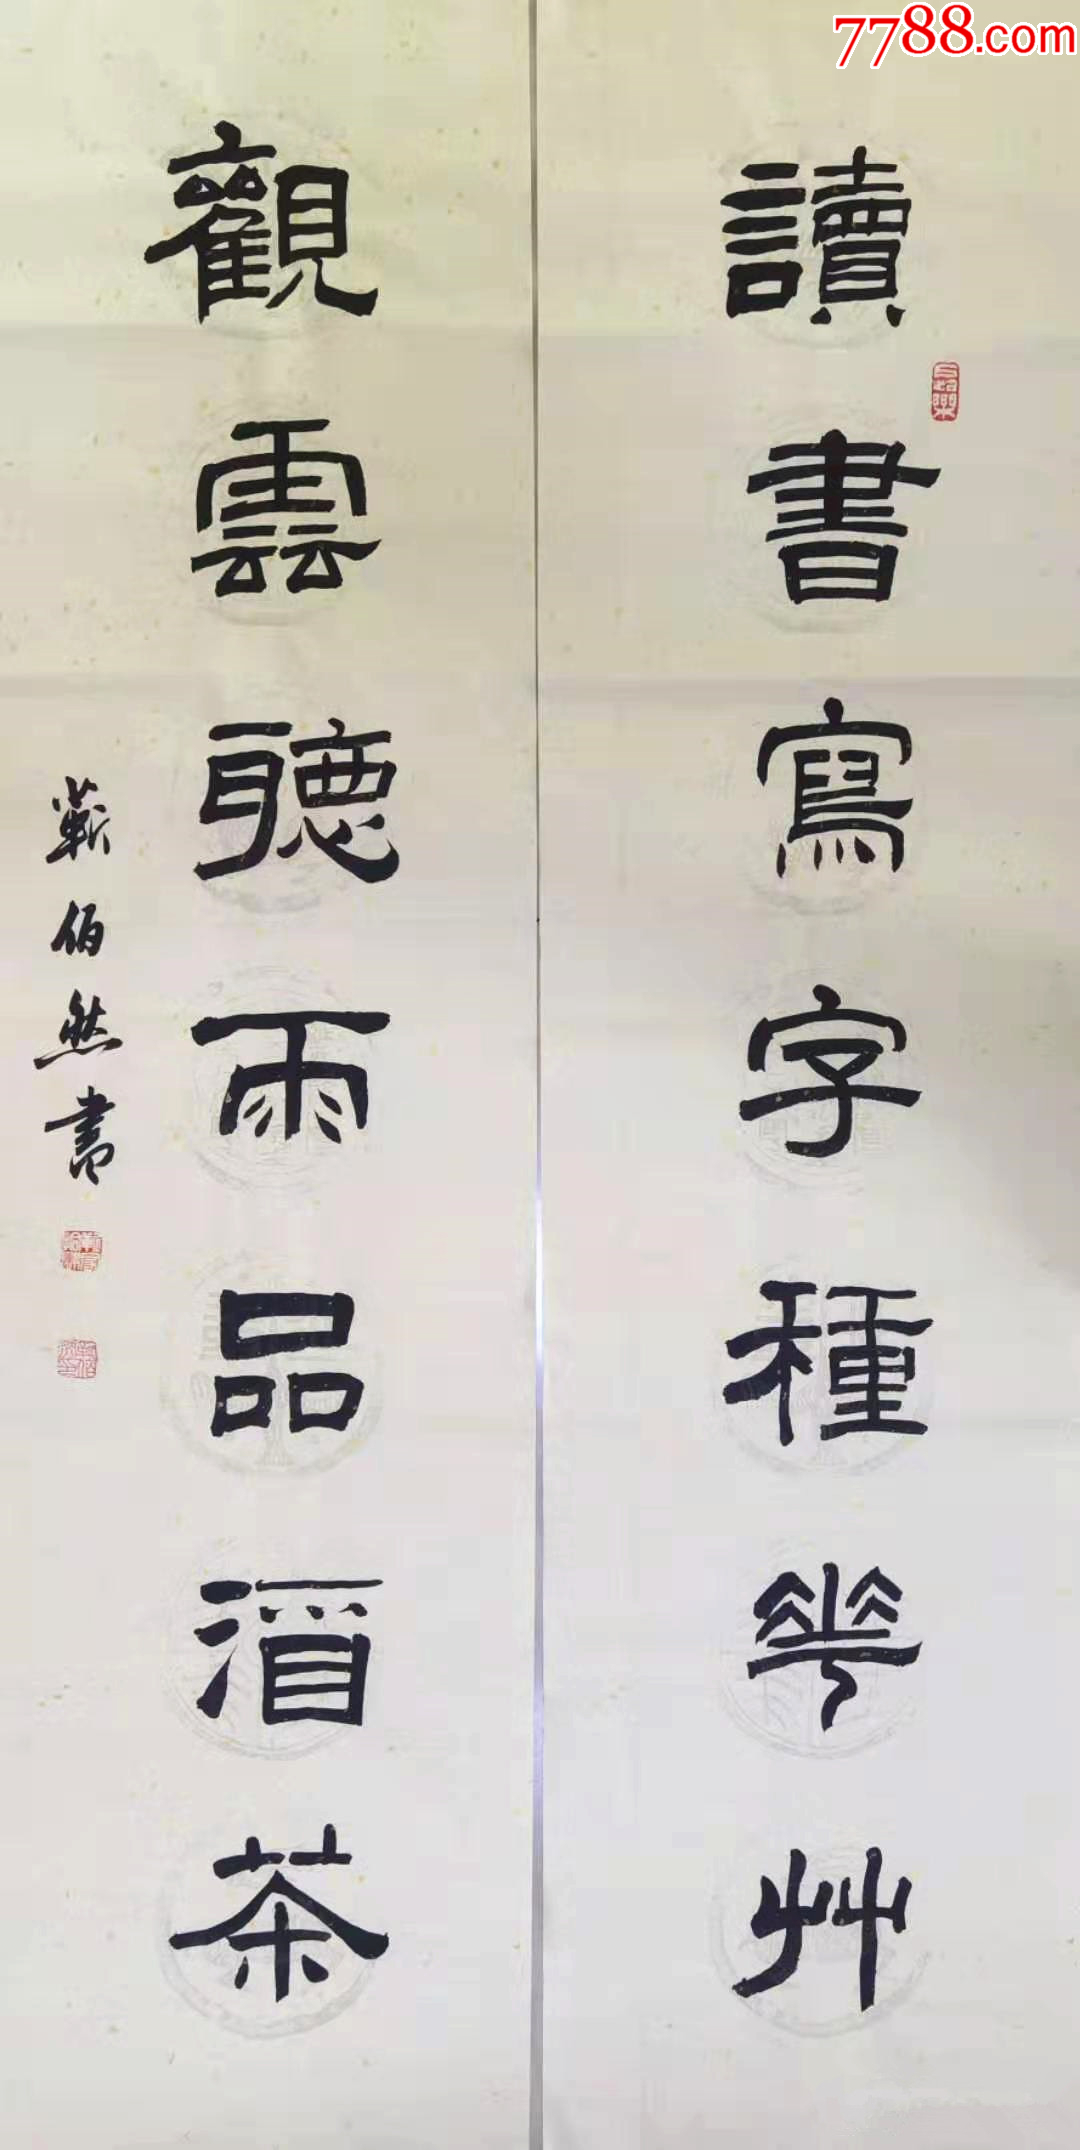 7788.com
讀書寫字種花艸
觀雲聽雨品酒茶
蘄伯然書